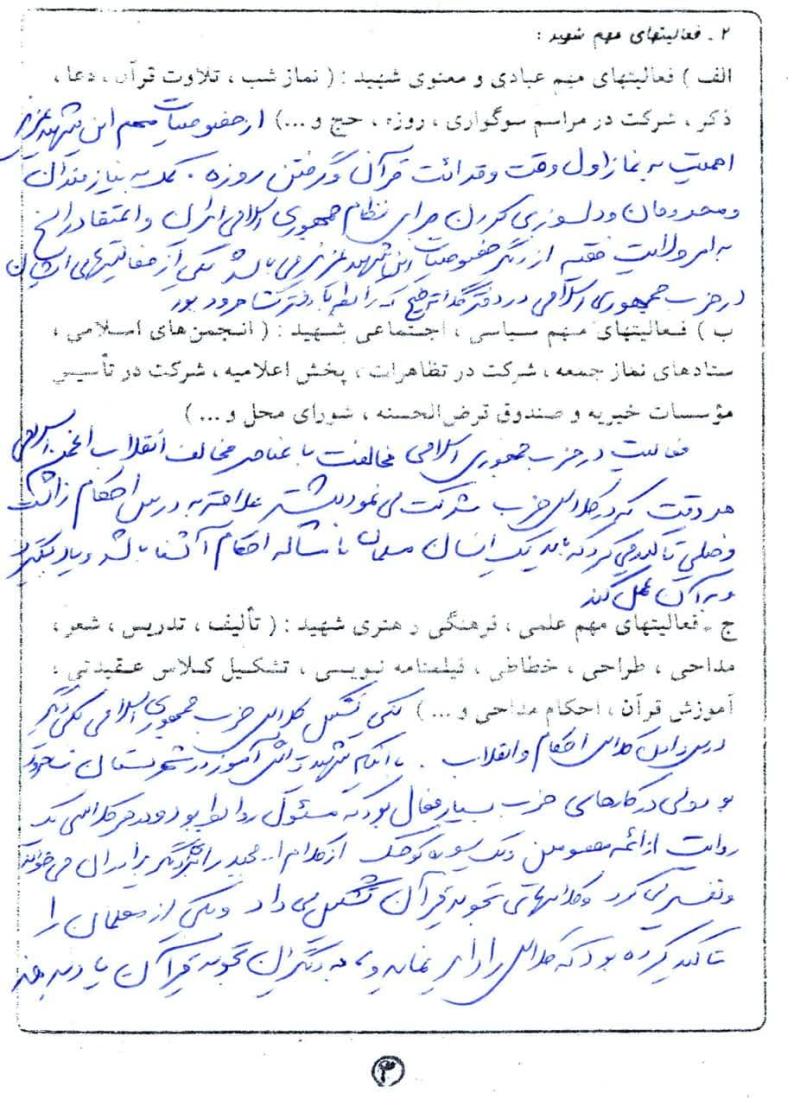 ۲ ـ فعالیتهای مهم شهید :
الف ) فعالیتهای مهم عبادی و معنوی شهید : ( نماز شب ، تلاوت قرآن ، دعا ،
ذکر ، شرکت در مراسم سوگواری ، روزه ، حج و ... ) از خصوصیات مهم این شهید عزیز
اهمیت به نماز اول وقت و قرائت قرآن و گرفتن روزه . کمک به نیازمندان
و محرومان و دلسوزی کردن برای نظام جمهوری اسلامی ایران و اعتقاد راسخ
به امر ولایت فقیه از دیگر خصوصیات این شهید عزیز می باشد یکی از فعالیتهای ایشان
در حزب جمهوری اسلامی در دفتر که رابط با دفتر بود
ب ) فعالیتهای مهم سیاسی ، اجتماعی شهید : ( انجمن‌های اسلامی ،
ستادهای نماز جمعه ، شرکت در تظاهرات ، پخش اعلامیه ، شرکت در تأسیس
مؤسسات خیریه و صندوق قرض‌الحسنه ، شورای محل و ... )
فعالیت در حزب جمهوری اسلامی مخالفت با عناصر مخالف انقلاب انجمن اسلامی
هر وقت که در کلاس حزب شرکت می نمود بیشتر علاقه به درس احکام داشت
و خیلی تاکید می کرد که باید یک انسان مسلمان با مساله احکام آشنا باشد و یاد بگیرد
و به آن عمل کند
ج ـ فعالیتهای مهم علمی ، فرهنگی و هنری شهید : ( تألیف ، تدریس ، شعر ،
مداحی ، طراحی ، خطاطی ، فیلمنامه نویسی ، تشکیل کلاس عقیدتی ،
آموزش قرآن ، احکام مداحی و ... ) یکی تشکیل کلاس حزب جمهوری اسلامی یکی دیگر
درس دادن کلاس احکام و انقلاب . با اینکه شهید دانش آموز در شهرستان
بود ولی در کارهای حزب بسیار فعال بود که مسئول روابط بود و در هر کلاسی یک
روایت از ائمه معصومین و یک سوره کوچک از کلام ا... مجید را برای می خواند
و تفسیر می کرد و کلاسهای تجوید قرآن تشکیل می داد و یکی از معلمان را
تاکید کرده بود که کلاس را دایر نماید و به دیگران تجوید قرآن یاد بدهد
۳